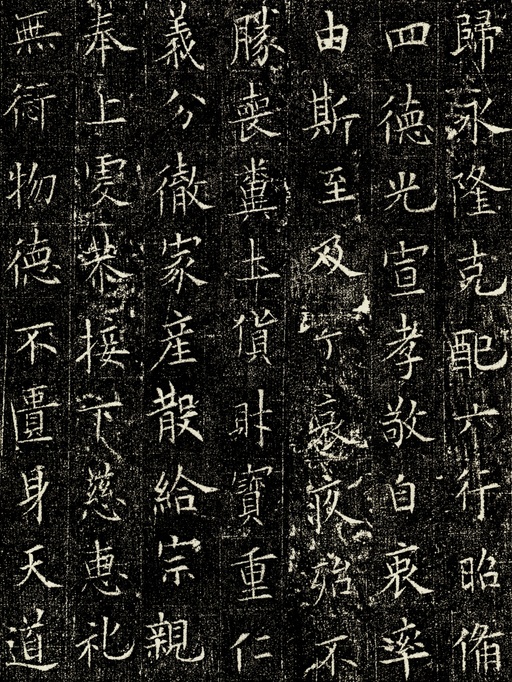 歸永隆克配六行昭備
四德光宣孝敬自衷率
由斯至及丁哀疚殆不
勝喪糞土貨財寶重仁
義分徹家産散給宗親
奉上虔恭接下慈惠礼
無衍物德不匱身天道